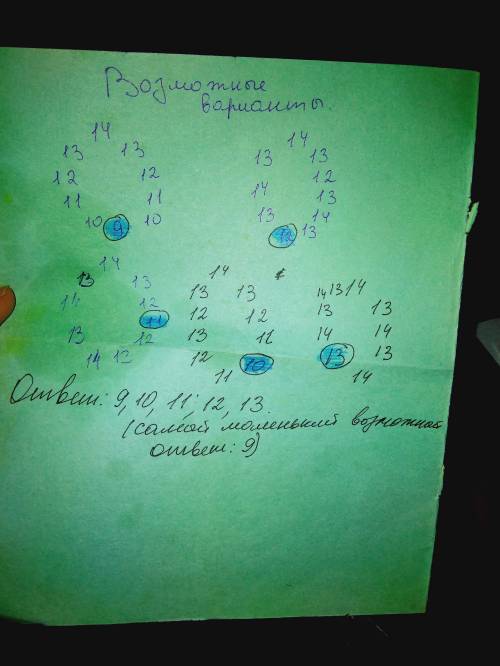 Возможные
варианты.
14
13 13
12 12
11 11
10 9 10
14
13 13
12
14 13
13 14
12 13
14
13 13
11 12
11
13 12
14 13
14
13 13
12 12
13 11
12 10
11
14 13 14
13 13
14 14
13 13
14
Ответ: 9, 10, 11, 12, 13.
(самой маленький возможной
ответ: 9)